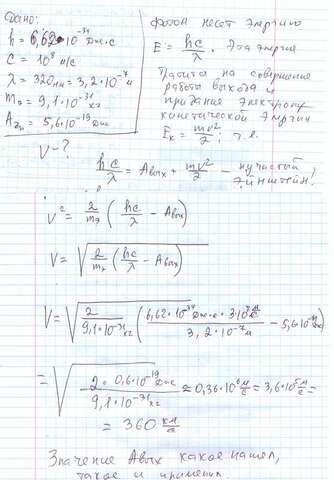 Дано:
h = 6,62·10⁻³⁴ Дж·с
c = 10⁸ м/с
λ = 320 нм = 3,2·10⁻⁷ м
mэ = 9,1·10⁻³¹ кг
AZn = 5,6·10⁻¹⁹ Дж
V - ?
Фотон несет энергию
E = hc/λ. Эта энергия
на совершение
работы выхода и
придание электрону
кинетической энергии
Eк = mv²/2; т.е.
hc/λ = Aвых + mv²/2 -
Эйнштейн!
V² = 2/mэ (hc/λ - Aвых)
V = √(2/mэ (hc/λ - Aвых))
V = √(2/9,1·10⁻³¹кг (6,62·10⁻³⁴Дж·с·3·10⁸м/с / 3,2·10⁻⁷м - 5,6·10⁻¹⁹Дж))
= √(2·0,6·10⁻¹⁹Дж·с / 9,1·10⁻³¹кг) ≈ 0,36·10⁶ м/с = 3,6·10⁵ м/с =
= 360 км/с
Значение Aвых какое нашел,
такое и применил.